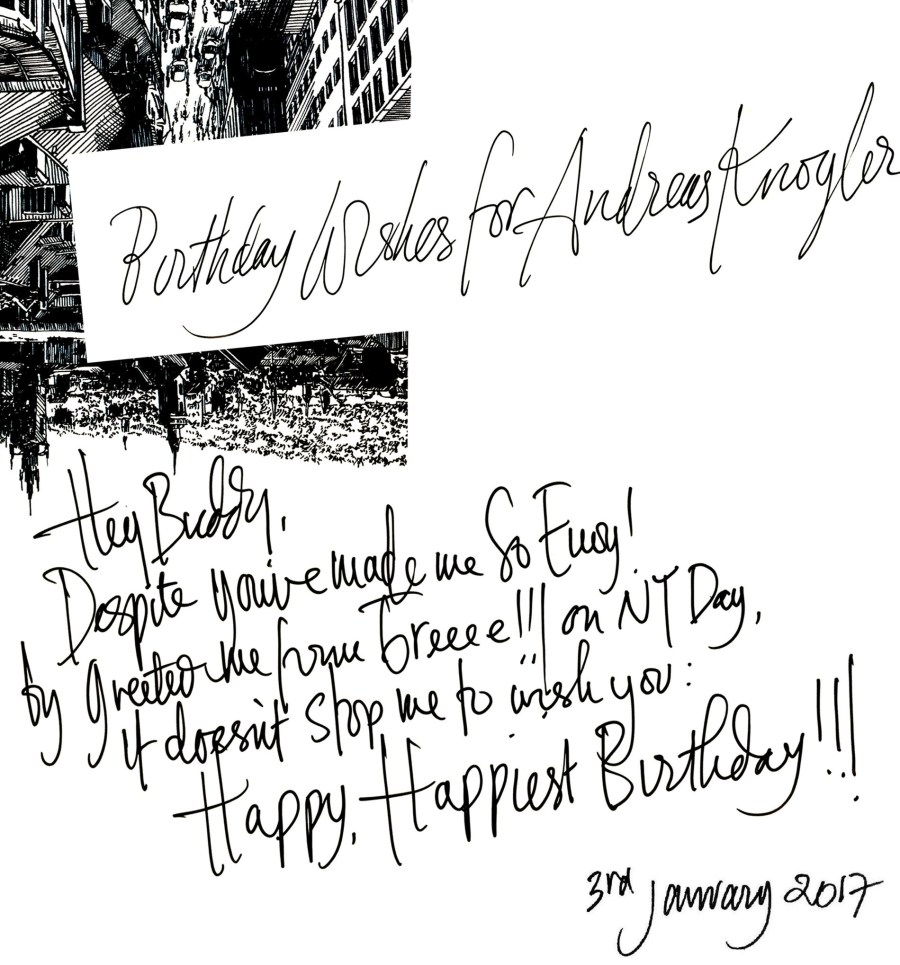 Birthday Wishes for Andreas Knogler
Hey Buddy,
Despite you've made me So Envy!
by greeted me from Greeee!!! on NY Day,
it doesn't stop me to wish you:
Happy, Happiest Birthday!!!
3rd January 2017